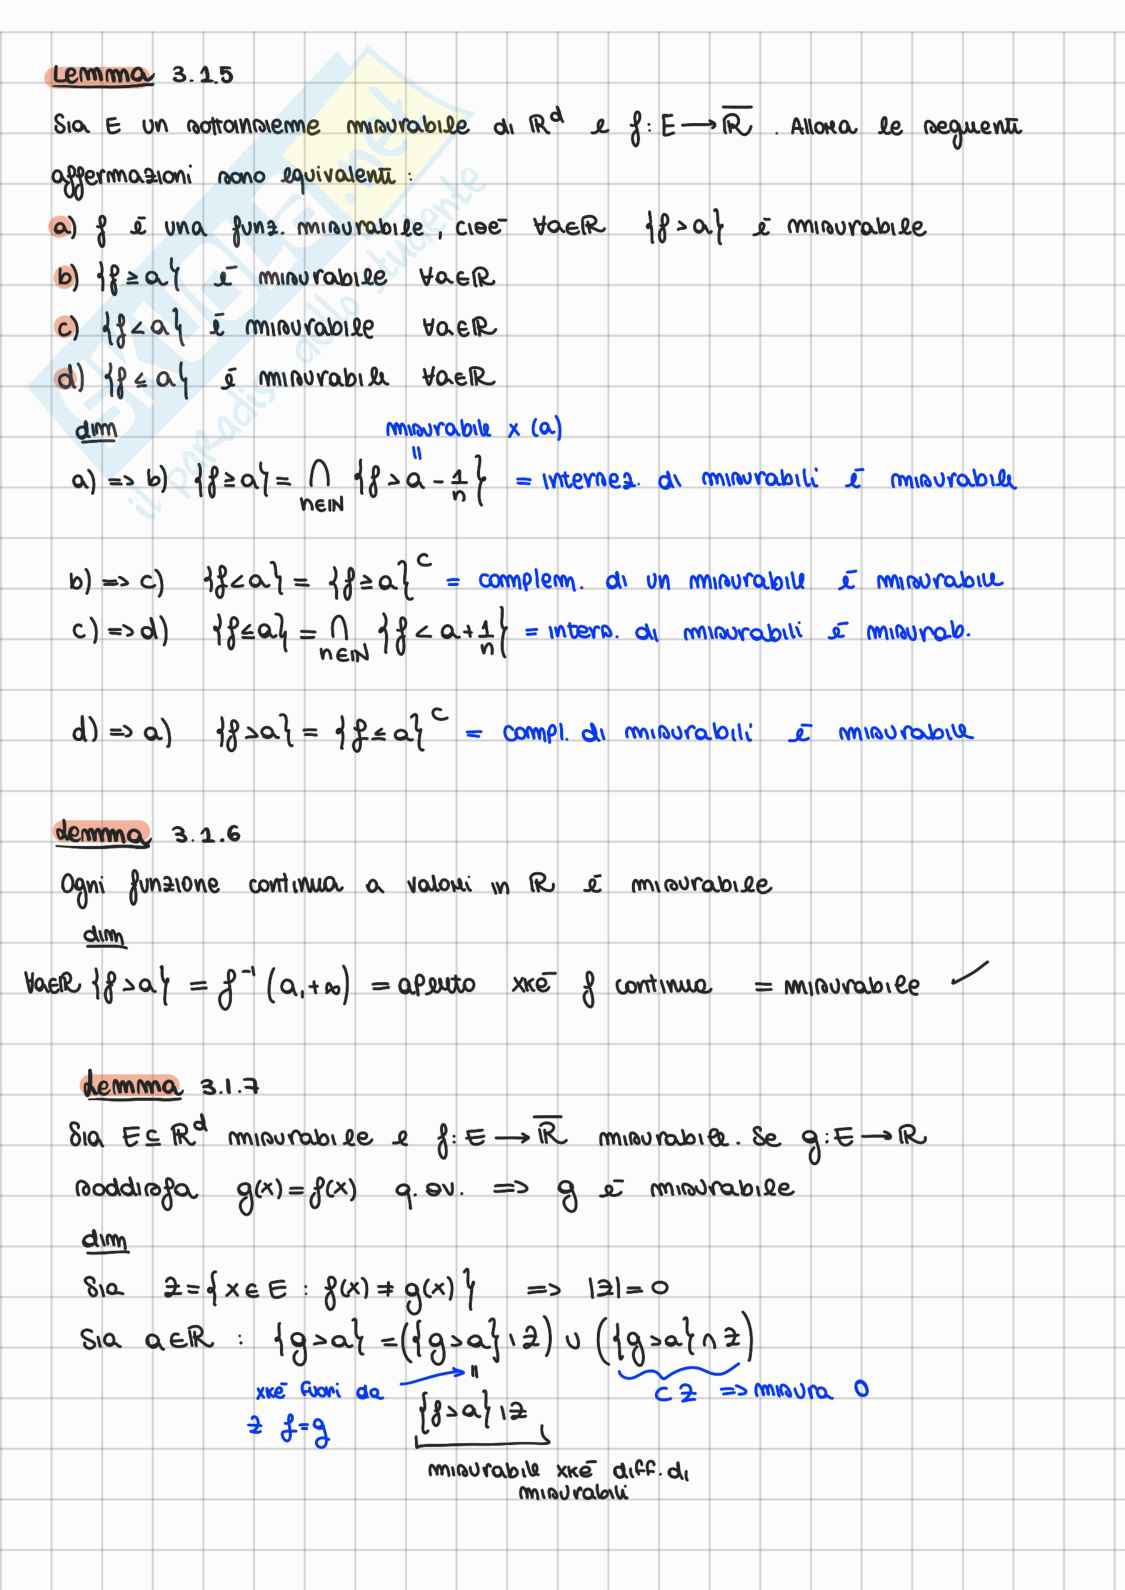 Lemma 3.1.5
Sia E un sottoinsieme misurabile di ℝᵈ e f: E → ℝ̅ . Allora le seguenti
affermazioni sono equivalenti :
a) f è una funz. misurabile, cioè ∀a∈ℝ {f > a} è misurabile
b) {f ≥ a} è misurabile ∀a∈ℝ
c) {f < a} è misurabile ∀a∈ℝ
d) {f ≤ a} è misurabile ∀a∈ℝ
dim
misurabile x (a)
a) => b) {f ≥ a} = ⋂ n∈ℕ {f > a - 1/n} = intersez. di misurabili è misurabile
b) => c) {f < a} = {f ≥ a}ᶜ = complem. di un misurabile è misurabile
c) => d) {f ≤ a} = ⋂ n∈ℕ {f < a + 1/n} = inters. di misurabili è misurab.
d) => a) {f > a} = {f ≤ a}ᶜ = compl. di misurabili è misurabile
Lemma 3.1.6
Ogni funzione continua a valori in ℝ è misurabile
dim
∀a∈ℝ {f > a} = f⁻¹ (a, +∞) = aperto xkè f continua = misurabile ✓
Lemma 3.1.7
Sia E ⊆ ℝᵈ misurabile e f: E → ℝ̅ misurabile. Se g: E → ℝ
soddisfa g(x) = f(x) q.ov. => g è misurabile
dim
Sia Z = {x ∈ E : f(x) ≠ g(x)} => |Z| = 0
Sia a∈ℝ : {g > a} = ({g > a} \ Z) ∪ ({g > a} ∩ Z)
xkè fuori da
Z f = g
{f > a} \ Z
⊂ Z => misura 0
misurabile xkè diff. di
misurabili
SKUOLA.net
il paradiso dello studente